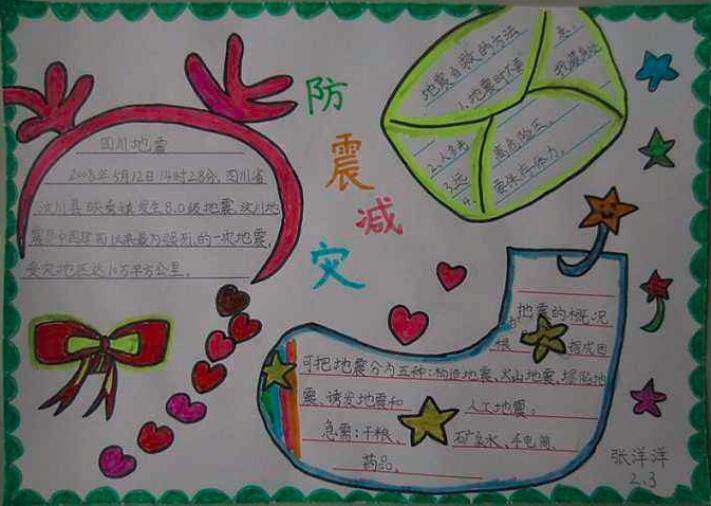 防
震
减
灾
四川地震
2008年5月12日14时28分,四川省
汶川县映秀镇发生8.0级地震,汶川地
震是中国建国以来最为强烈的一次地震,
受灾地区达10万平方公里。
地震自救的方法
1.地震时不要
急。
2.人多
3.远离危险区。
4.要保持体力。
地震的概况
根 成因
可把地震分为五种:构造地震、火山地震、塌陷地
震、诱发地震和 人工地震。
急需:干粮、 矿泉水、手电筒、
药品。
张洋洋
2.3